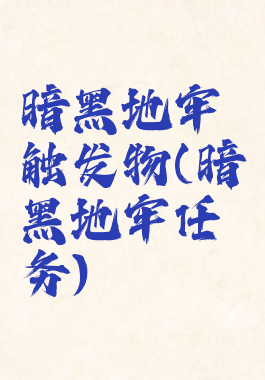 暗黑地牢
触发物(暗
黑地牢任
务)